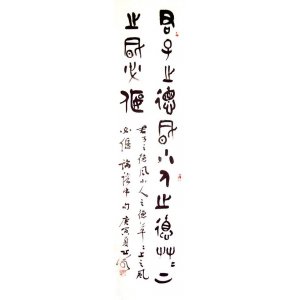 君子之德風小人之德艸=
之風必偃
君子之德風小人之德草=上之風
必偃 論語中句 庚寅